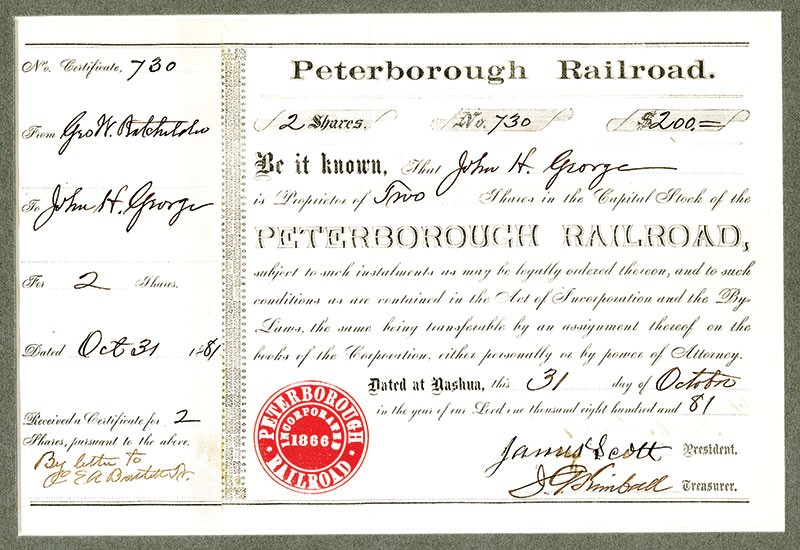 No. Certificate, 730
From Geo W. Batchelder
To John H. George
For 2 Shares.
Dated Oct 31 1881
Received a Certificate for 2
Shares, pursuant to the above.
By letter to
E A
Peterborough Railroad.
2 Shares. No. 730 $200.=
Be it known, That John H. George
is Proprietor of Two Shares in the Capital Stock of the
PETERBOROUGH RAILROAD,
subject to such instalments as may be legally ordered thereon; and to such
conditions as are contained in the Act of Incorporation and the By-
Laws, the same being transferable by an assignment thereof on the
books of the Corporation, either personally or by power of Attorney.
Dated at Nashua, this 31 day of October
in the year of our Lord one thousand eight hundred and 81
PETERBOROUGH
INCORPORATED
1866
RAILROAD
James Scott President.
Kimball Treasurer.